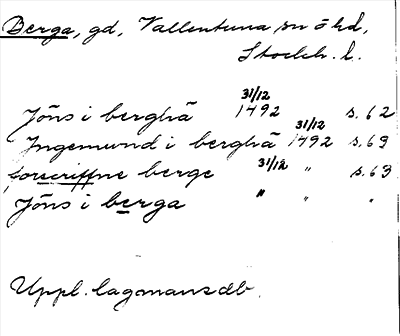 Berga, gd, Vallentuna sn o hd,
Stockh. l.
Jöns i berghä 31/12 1492 s. 62
Ingemund i berghä 31/12 1492 s. 69
forscriffne berge 31/12 " s. 63
Jöns i berga " " "
Uppl. lagmansdb.